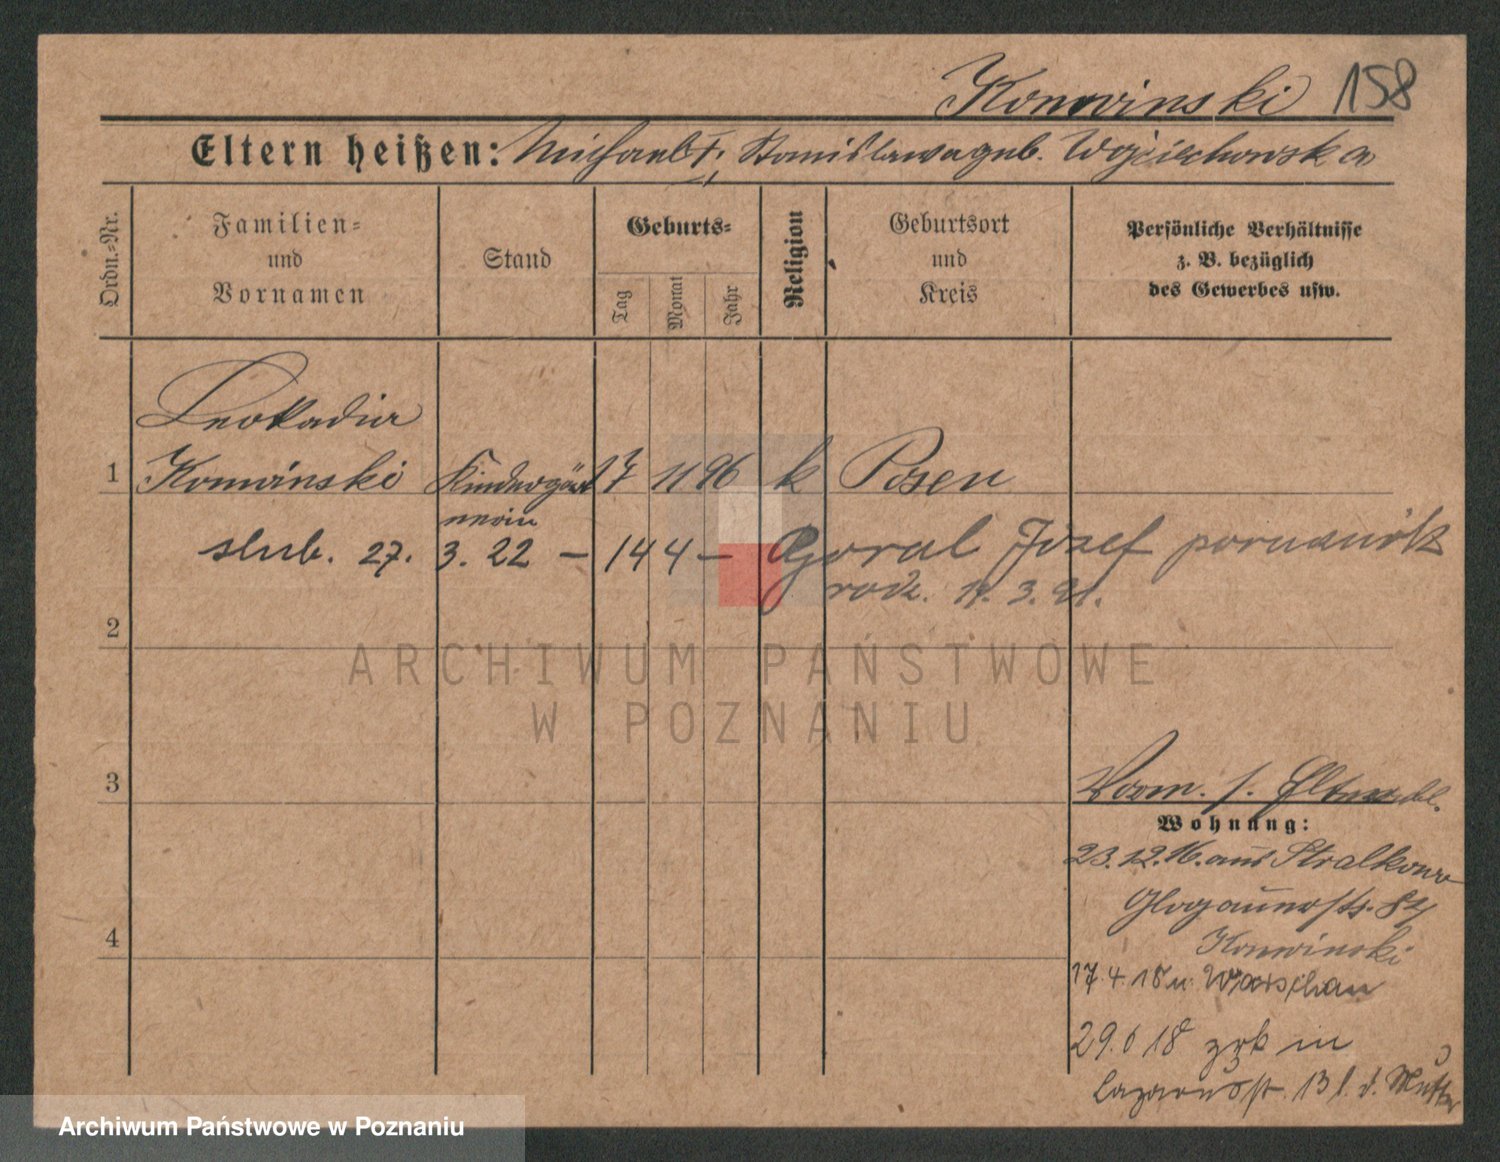 Konwinski 158
Eltern heißen: Michael †, Stanislawa geb. Wojciechowska
Ordn.-Nr.
Familien-
und
Vornamen
Stand
Geburts-
Tag
Monat
Jahr
Religion
Geburtsort
und
Kreis
Persönliche Verhältnisse
z. B. bezüglich
des Gewerbes usw.
Leokadia
1 Konwinski Kindergärt 17 11 96 k Posen
nerin
slub. 27. 3. 22 — 144 — Goral Józef porucznik
rodz. 3. 91.
2
ARCHIWUM PAŃSTWOWE
W POZNANIU
3
Vorm. s. Elternbl.
Wohnung:
23.12.16. aus Stralkowo
Glogauerstr. 84
4
Konwinski
17.4.18 n. Warschau
29.6 18 zrk in
Lazarusstr. 13 b. d. Mutter
Archiwum Państwowe w Poznaniu